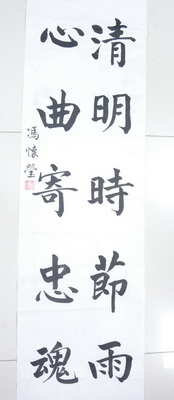 清明時節雨
心曲寄忠魂
馮懷瑩